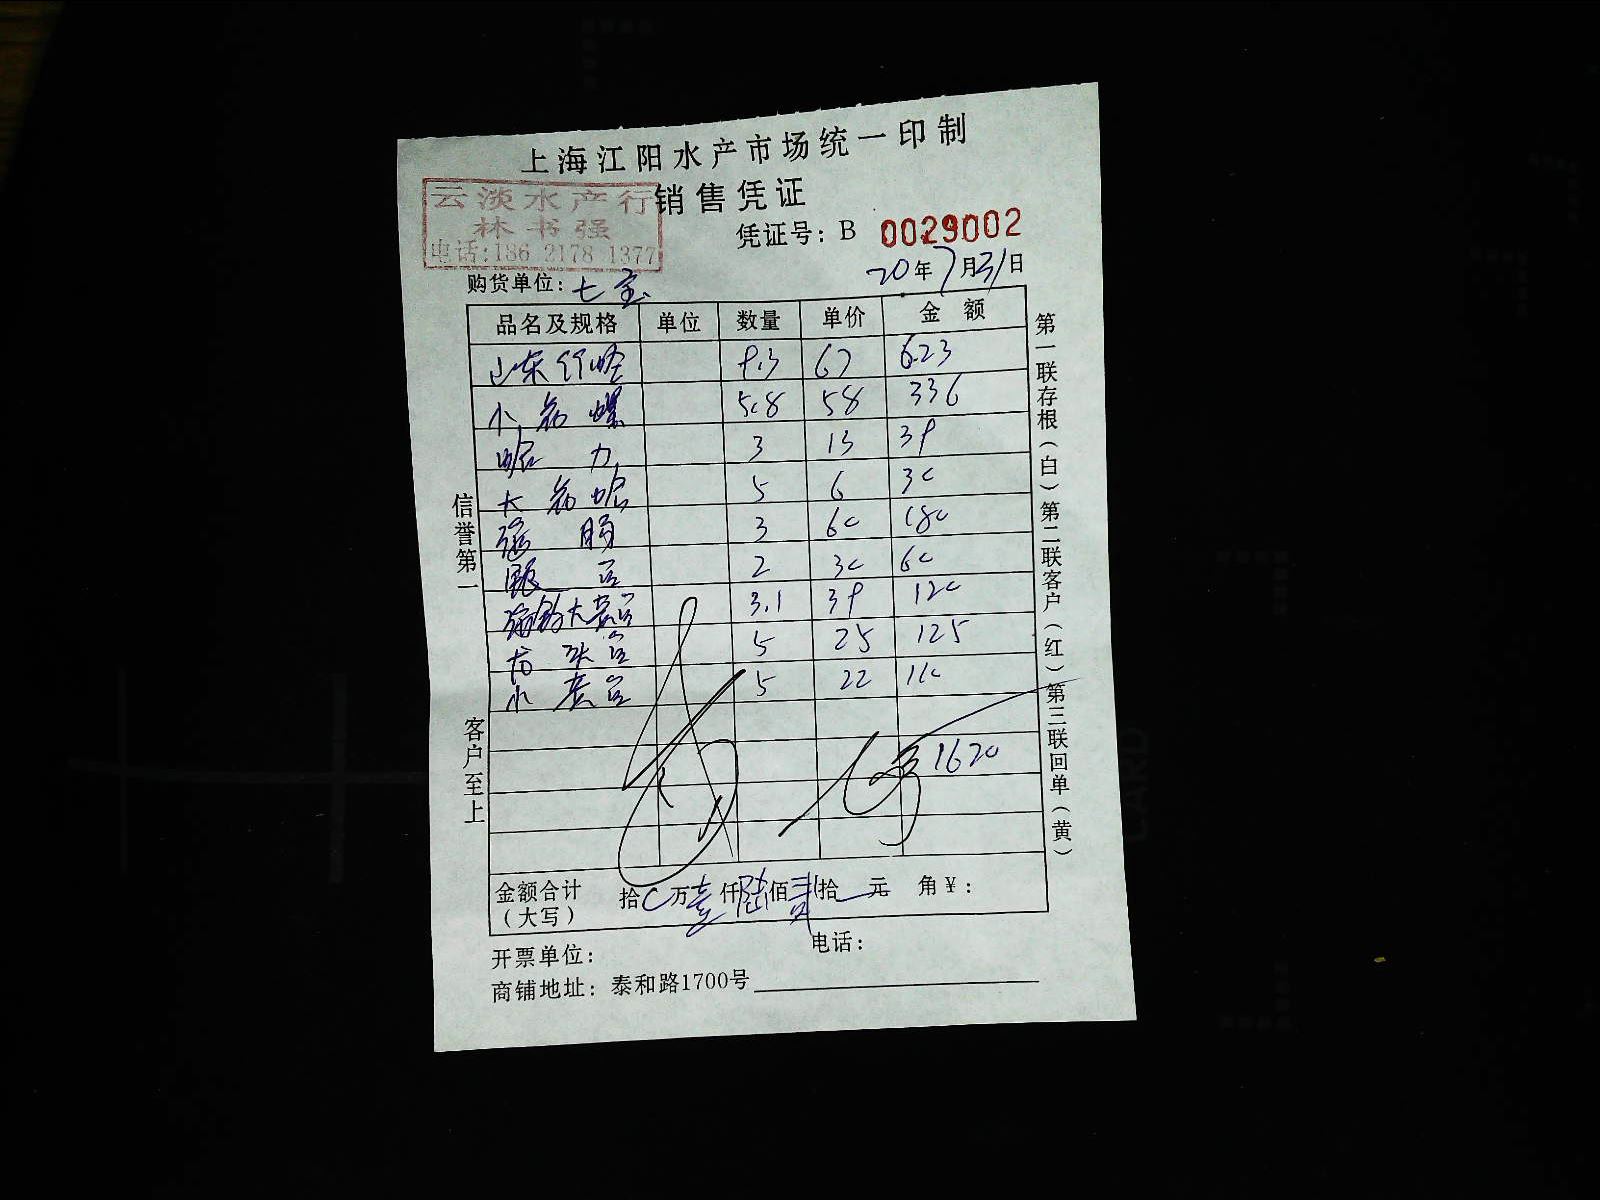 上海江阳水产市场统一印制
销售凭证
云淡水产行
林书强
电话:186 2178 1377
凭证号：B 0029002
购货单位：七宝
20年7月31日
品名及规格 单位 数量 单价 金额
山东竹蛏 9.3 67 623
小 螺 5.8 58 336
3 13 39
大 蛤 5 6 30
肠 3 60 180
2 30 60
大 3.1 39 120
5 25 125
小 5 22 110
1620
金额合计（大写） 拾 万壹仟陆佰贰拾 元 角￥：
开票单位： 电话：
商铺地址：泰和路1700号
信誉第一 客户至上
第一联存根（白）第二联客户（红）第三联回单（黄）